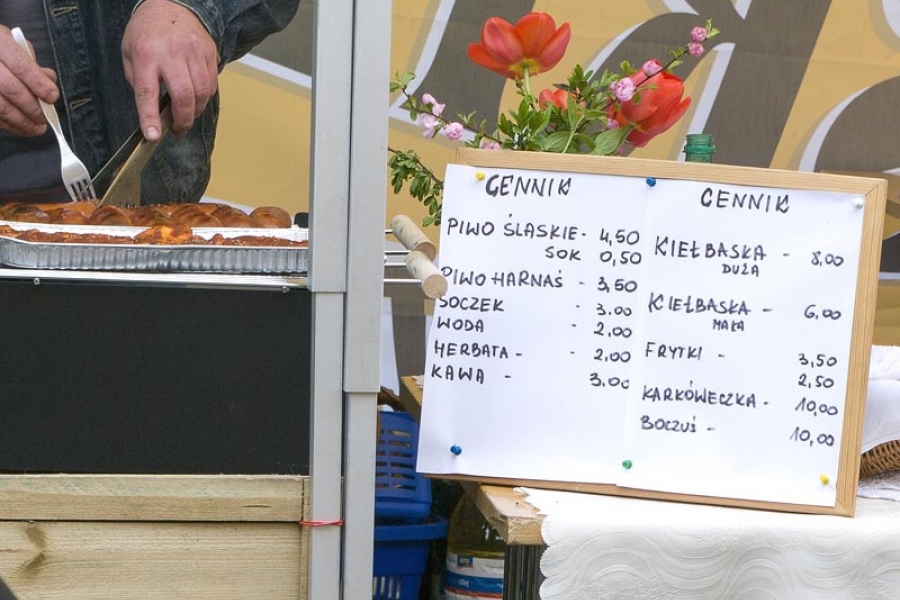 CENNIK
PIWO ŚLASKIE - 4,50
SOK 0,50
PIWO HARNAŚ - 3,50
SOCZEK - 3.00
WODA - 2,00
HERBATA - - 2,00
KAWA - 3,00
CENNIK
KIEŁBASKA - 8,00
DUŻA
KIEŁBASKA - 6,00
MAŁA
FRYTKI - 3,50
2,50
KARKÓWECZKA - 10,00
BOCZUŚ - 10,00